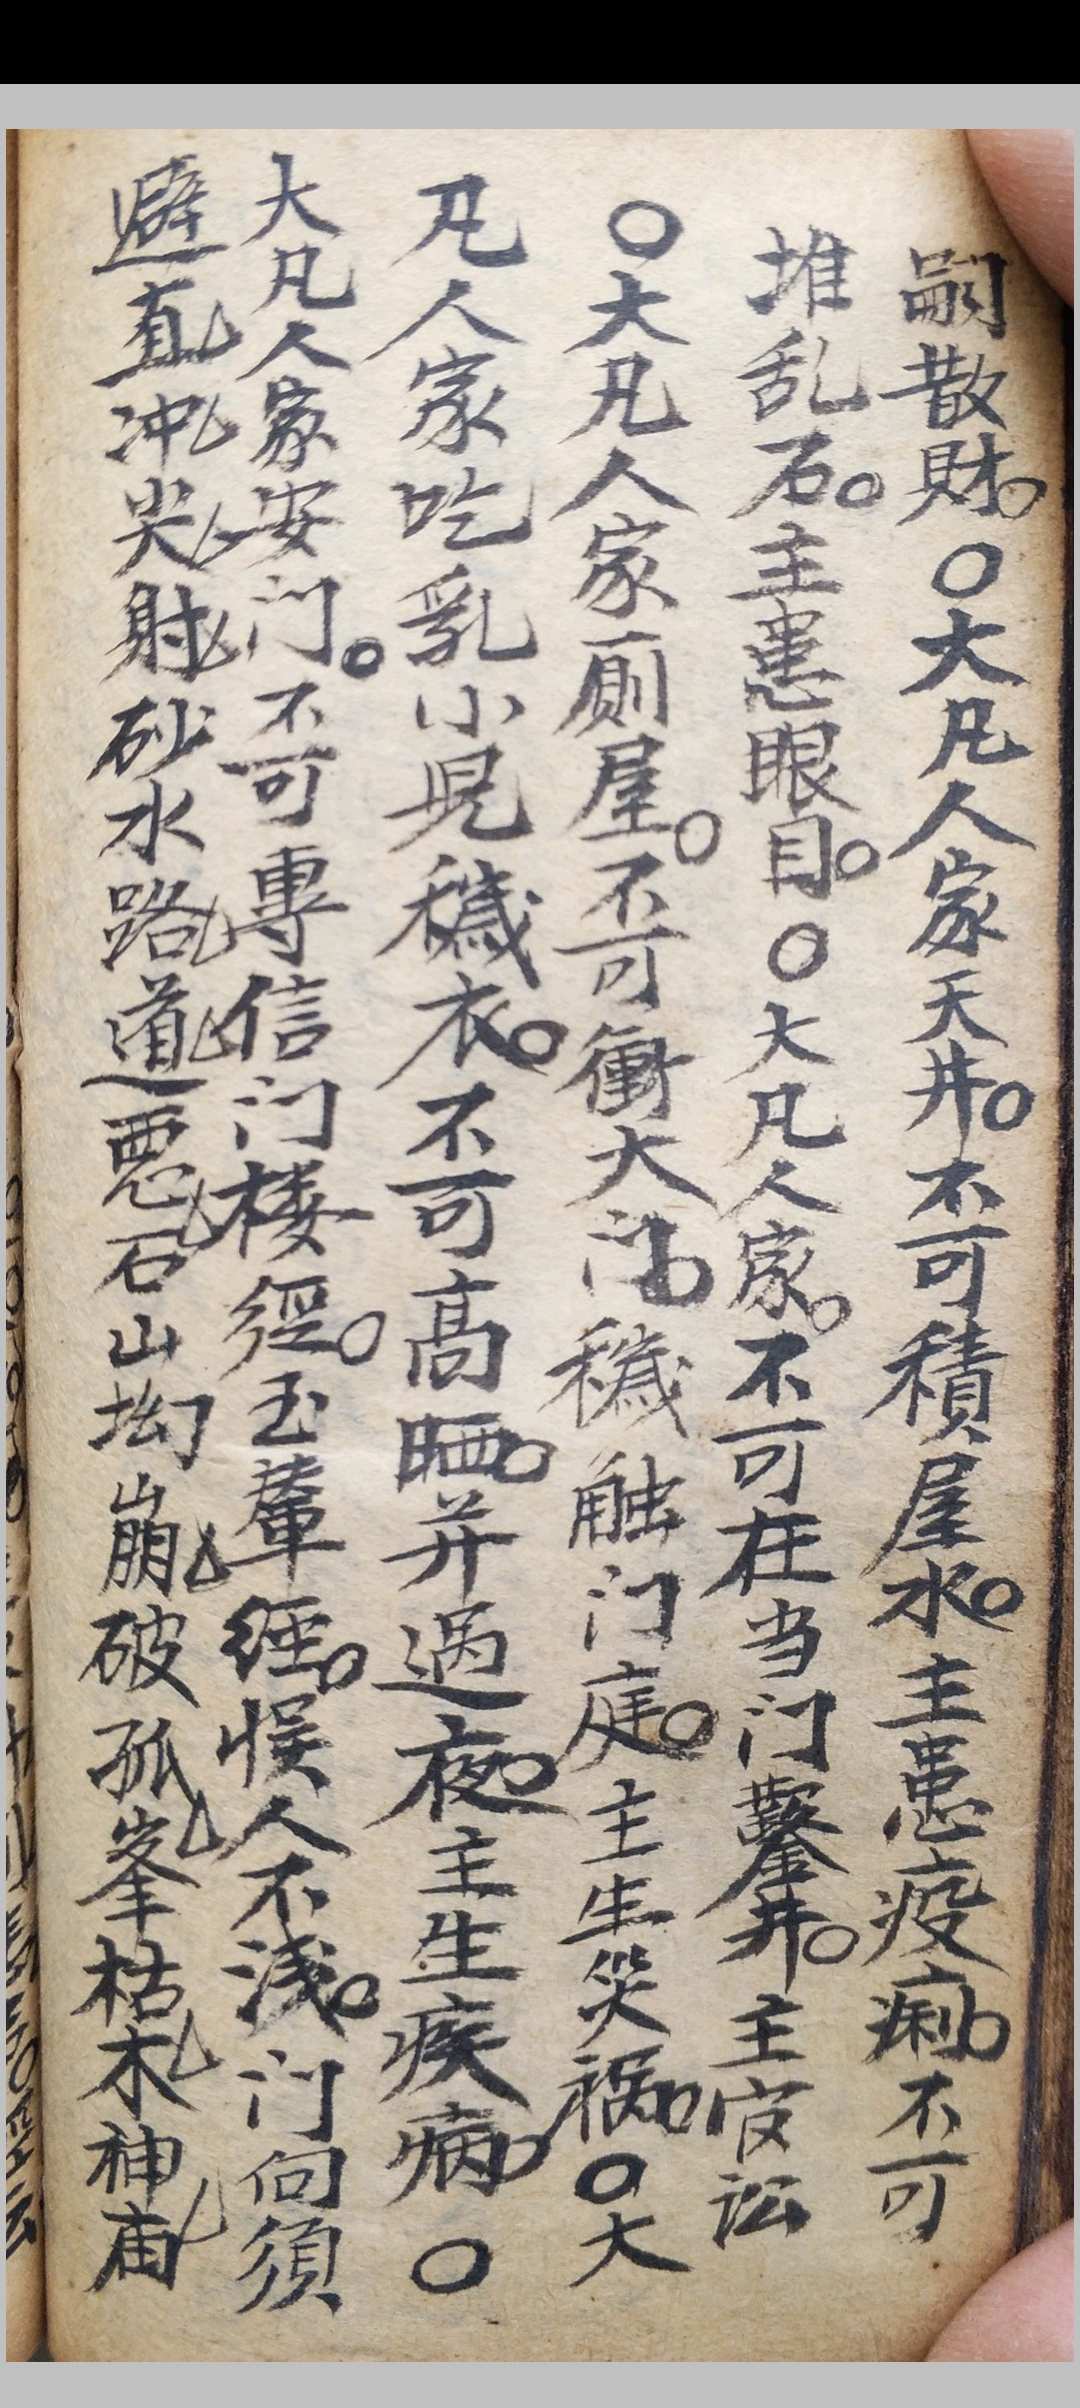 嗣散財。○大凡人家天井。不可積屋水。主患疫痢。不可
堆乱石。主患眼目。○大凡人家。不可在当门鑿井。主官讼
○大凡人家厕屋。不可衝大门。穢触门庭。主生災祸。○大
凡人家吃乳小児穢衣。不可高晒。并过夜。主生疾病。○
大凡人家安门。不可專信门楼經。玉輦经。悮人不浅。门向須
避直冲尖射砂水路道悪石山坳崩破孤峯枯木神庙